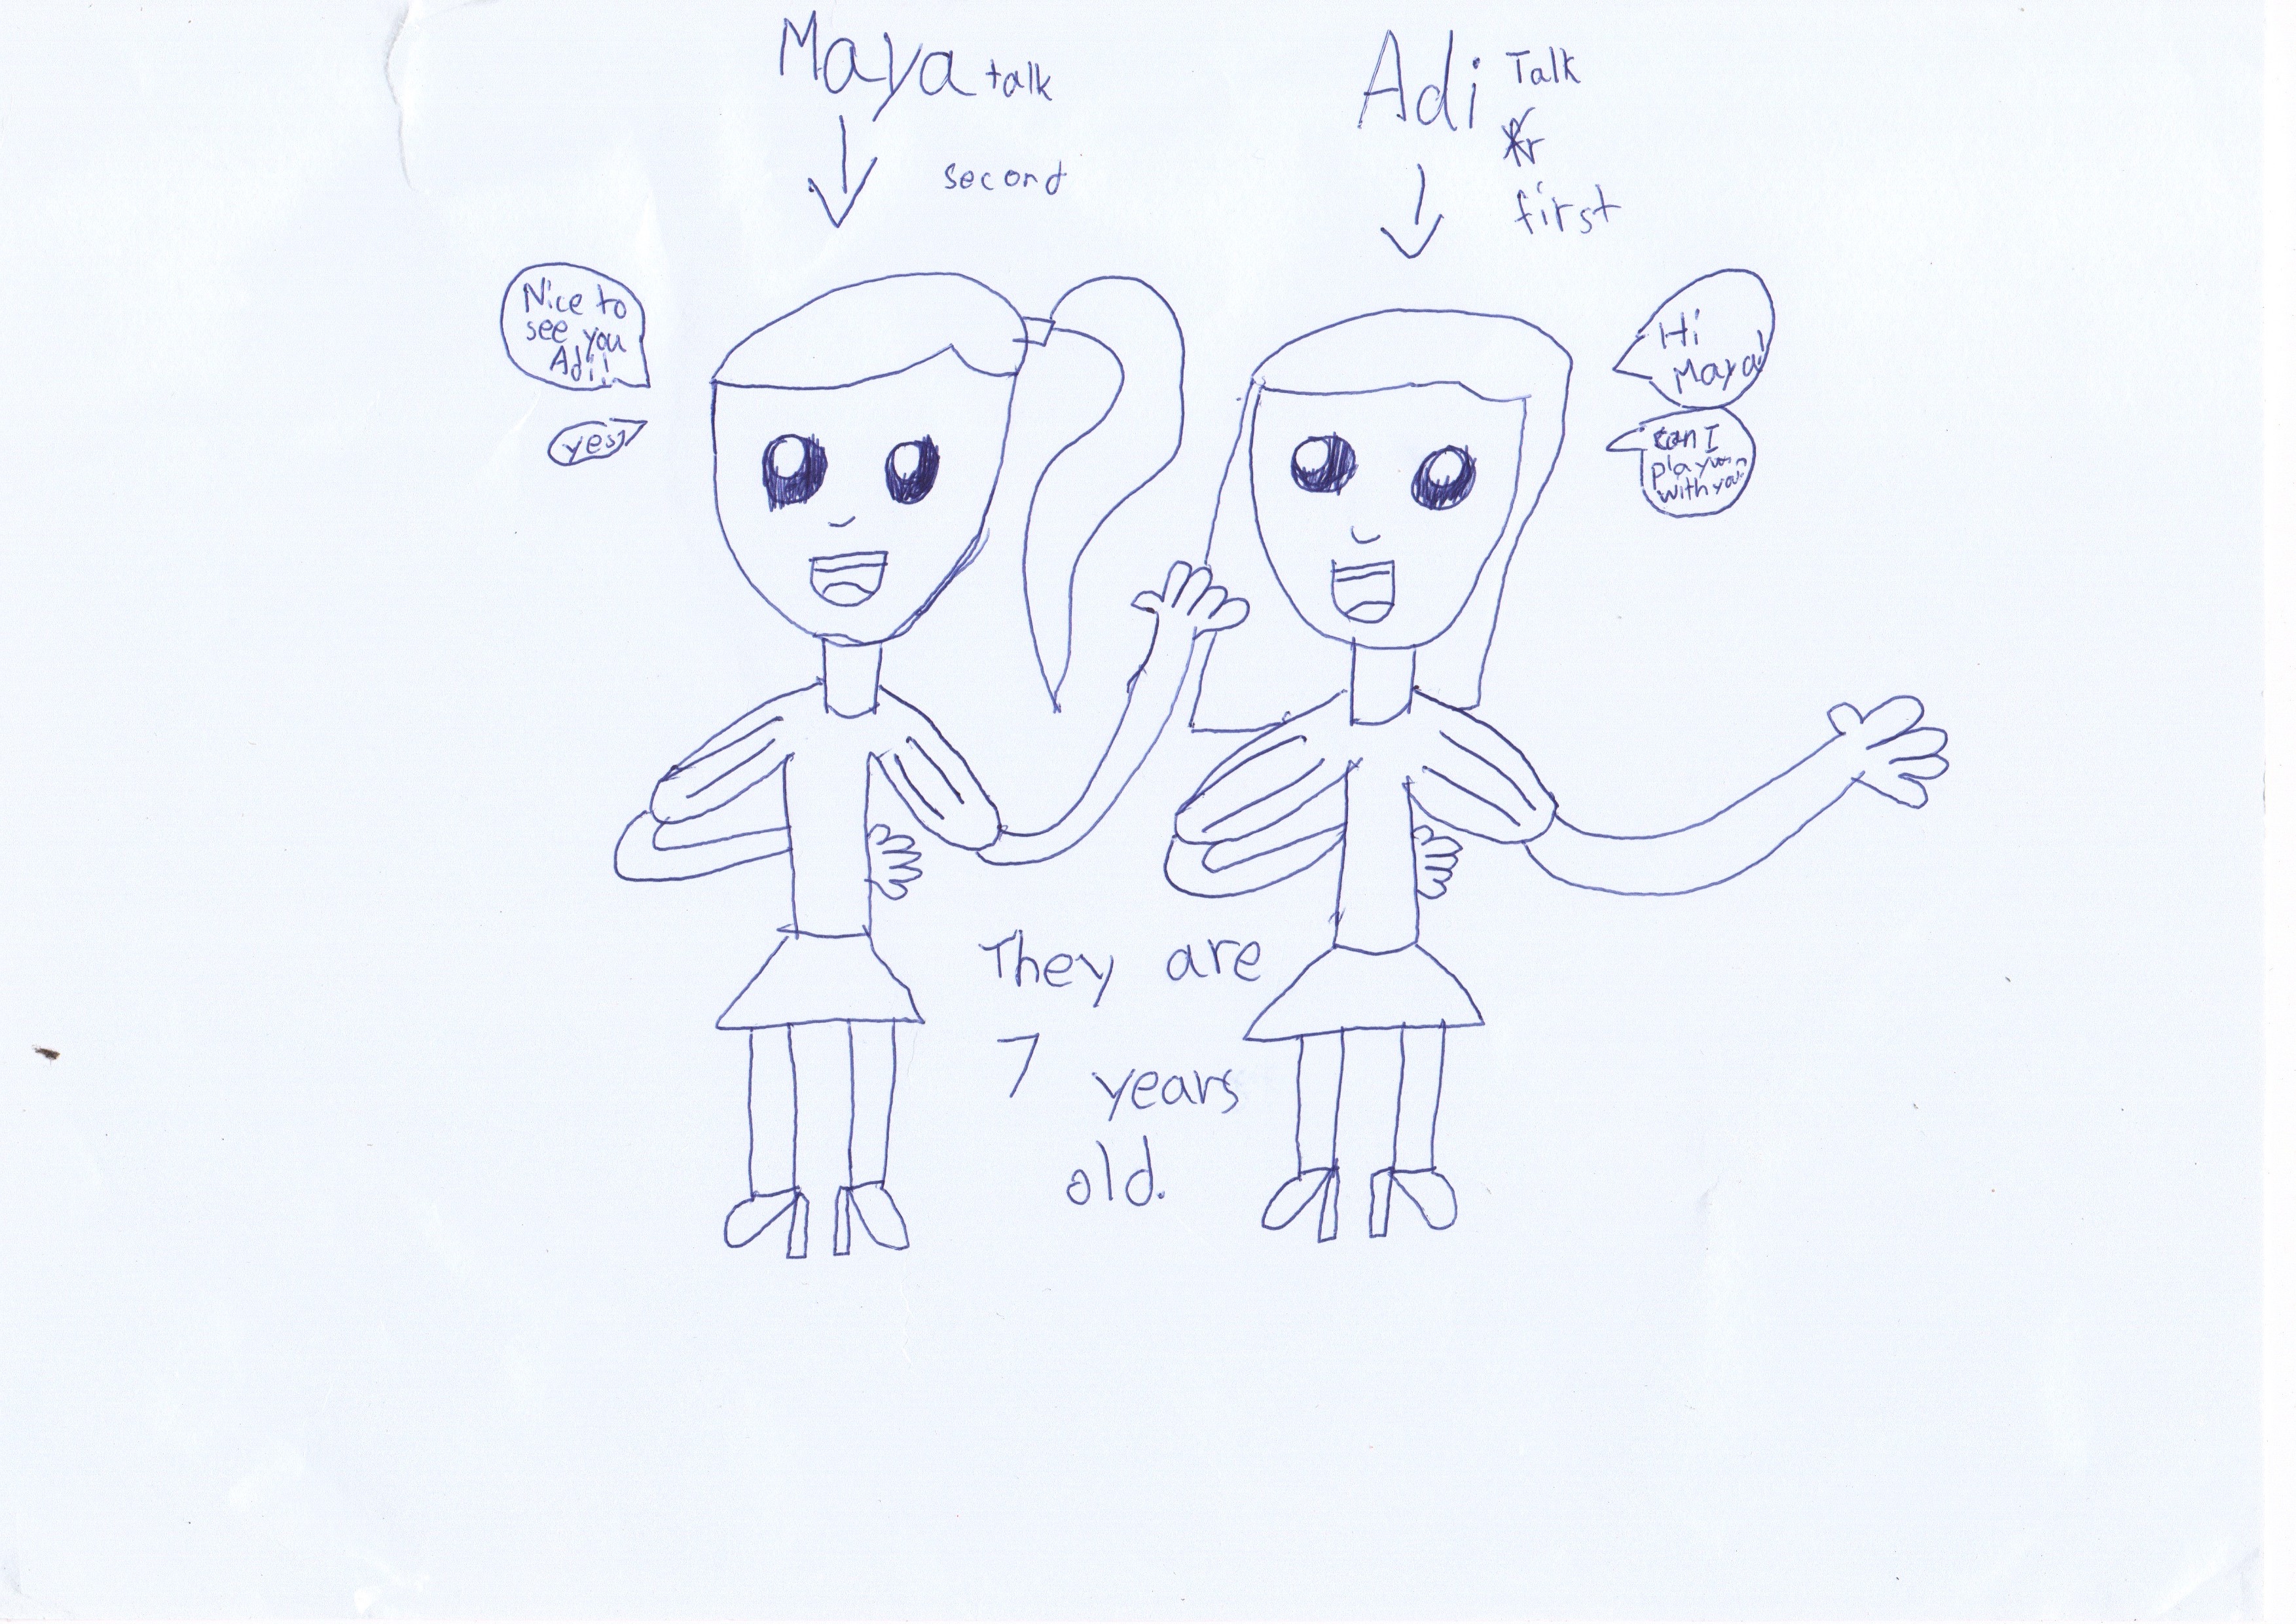 Maya talk
second
Adi Talk
first
Nice to
see you
Adi!
yes
Hi
Maya!
can I
play
with you
They are
7 years
old.